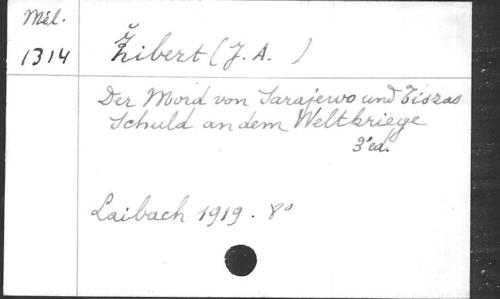 Mél.
1314
Žibert (J. A. )
Der Mord von Sarajewo und Tiszas
Schuld an dem Weltkriege
3ᵉ éd.
Laibach 1919. 8°